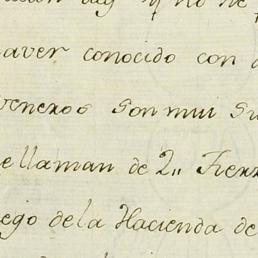 y no se
aver conocido con
veneros son mui su
e llaman de 2,, Fierr
ego dela Hacienda de